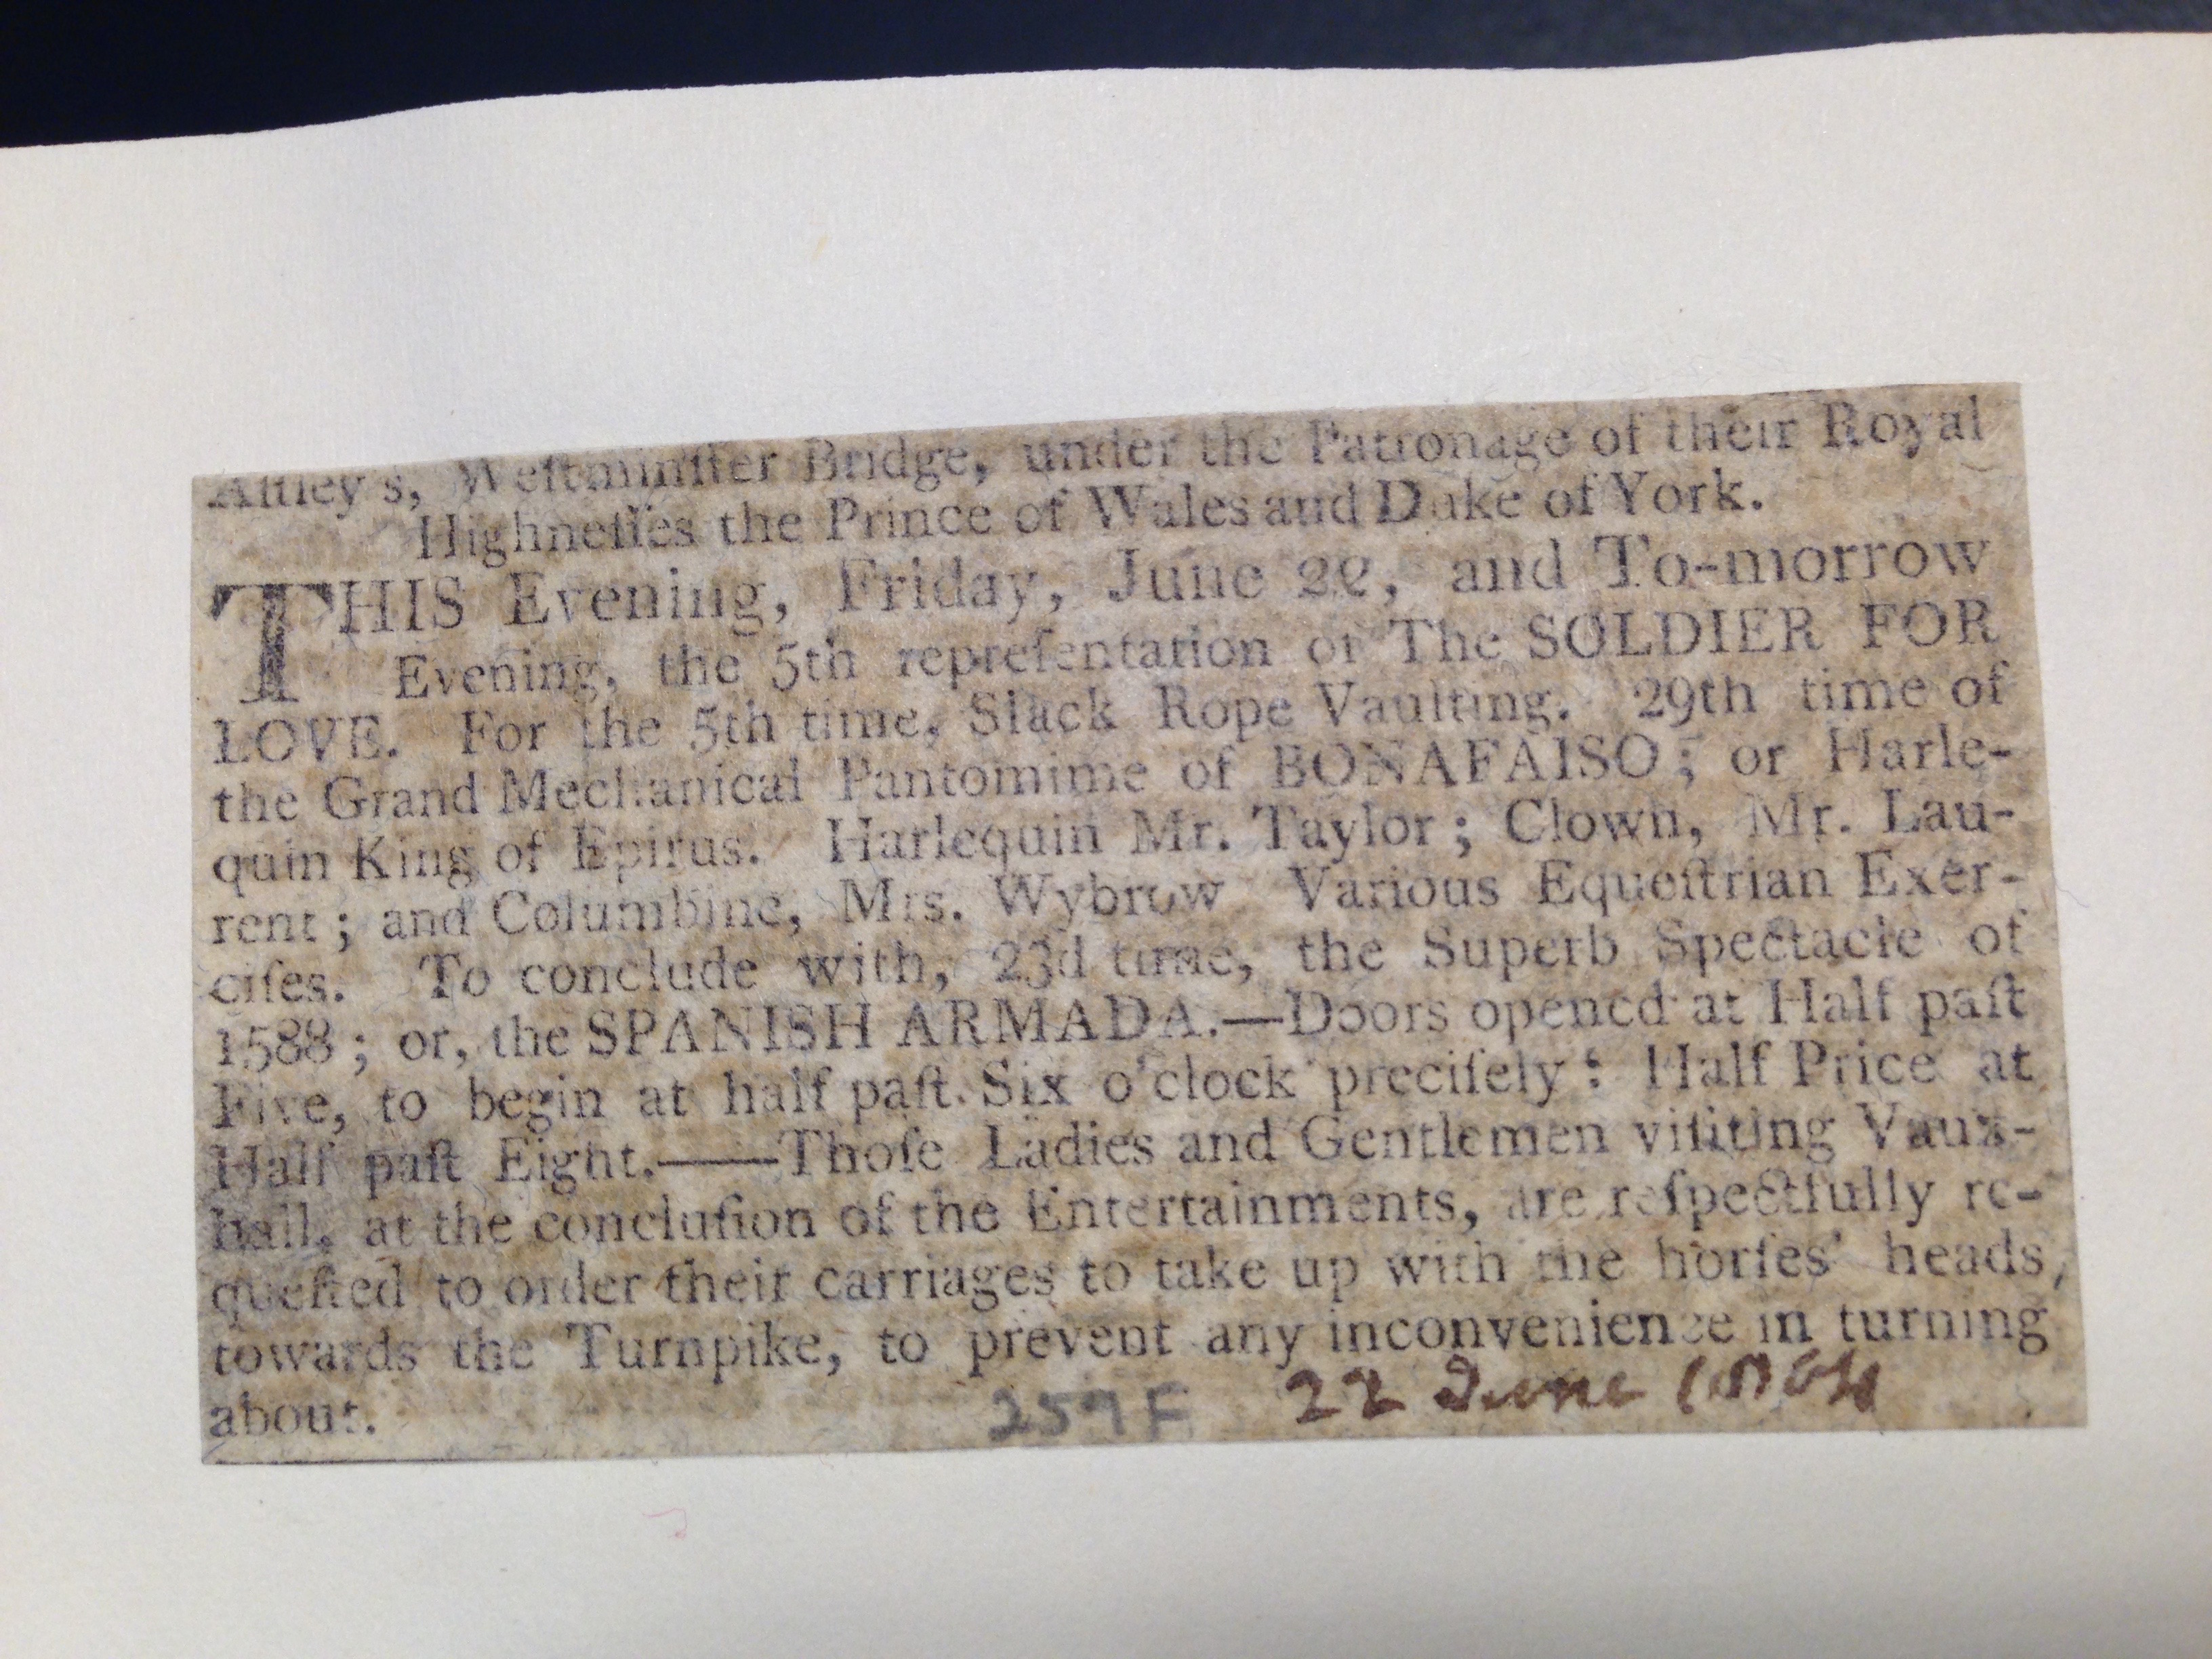 Aſtley's, Weſtminſter Bridge, under the Patronage of their Royal
Highneſſes the Prince of Wales and Duke of York.
THIS Evening, Friday, June 22, and To-morrow
Evening, the 5th repreſentation of The SOLDIER FOR
LOVE. For the 5th time, Slack Rope Vaulting. 29th time of
the Grand Mechanical Pantomime of BONAFAISO; or Harle-
quin King of Epirus. Harlequin Mr. Taylor; Clown, Mr. Lau-
rent; and Columbine, Mrs. Wybrow Various Equeſtrian Exer-
ciſes. To conclude with, 23d time, the Superb Spectacle of
1588; or, the SPANISH ARMADA.—Doors opened at Half paſt
Five, to begin at half paſt Six o'clock preciſely: Half Price at
Half paſt Eight.——Thoſe Ladies and Gentlemen viſiting Vaux-
hall, at the concluſion of the Entertainments, are reſpectfully re-
queſted to order their carriages to take up with the horſes' heads,
towards the Turnpike, to prevent any inconvenience in turning
about.
259F 22 June 1804